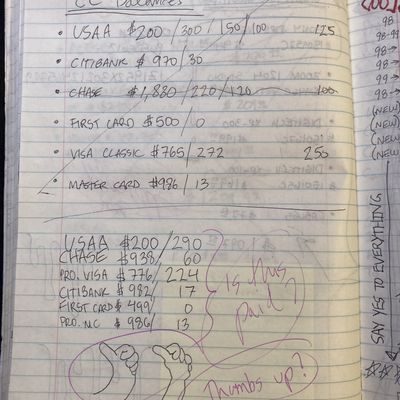 CC BALANCES
• USAA $200/300/150/100 125
• CITIBANK $970/30
• CHASE $1,880/220/120 100
• FIRST CARD $500/0
• VISA CLASSIC $765/272 250
• MASTER CARD $986/13
USAA $200/290
CHASE $938/60
PRO. VISA $776/224
CITIBANK $982/17
FIRST CARD $499/0
PRO. MC $986/13
Is this
paid?
Thumbs up?
98
98-99
98→
98→
98→
99→
98→
(NEW)
(NEW)
(NEW)
(NEW)
SAY YES TO EVERYTHING